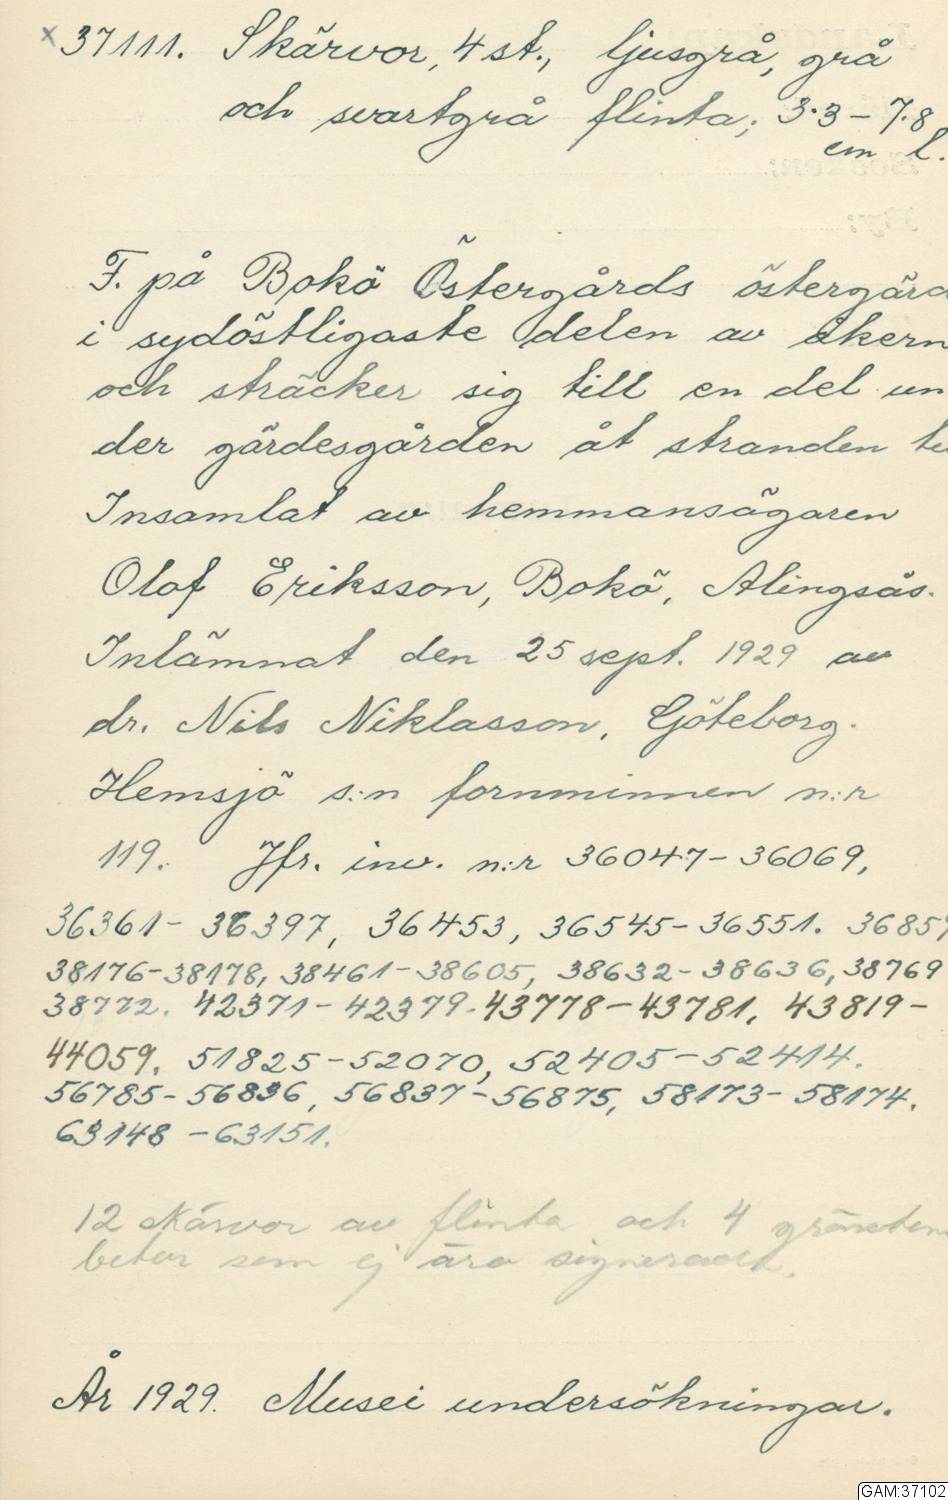 x 37111. Skärvor, 4 st., ljusgrå, grå
och svartgrå flinta; 3.3 – 7.8
cm l.
F. på Bokö Östergårds östergärd
i sydöstligaste delen av åkern
och sträcker sig till en del un
der gärdesgården åt stranden
Insamlat av hemmansägaren
Olof Eriksson, Bokö, Alingsås.
Inlämnat den 25 sept. 1929 av
dr. Nils Niklasson, Göteborg.
Hemsjö s:n fornminnen n:r
119. Jfr. inv. n:r 36047–36069,
36361– 36397, 36453, 36545–36551. 36859
38176–38178, 38461–38605, 38632–38636, 38769
38772. 42371–42379. 43778–43781, 43819–
44059. 51825–52070, 52405–52414.
56785–56836, 56837–56875, 58173–58174.
63148 –63151.
12 skärvor av flinta och 4 grönsten
bitar som ej äro signerade.
År 1929. Musei undersökningar.
GAM:37102